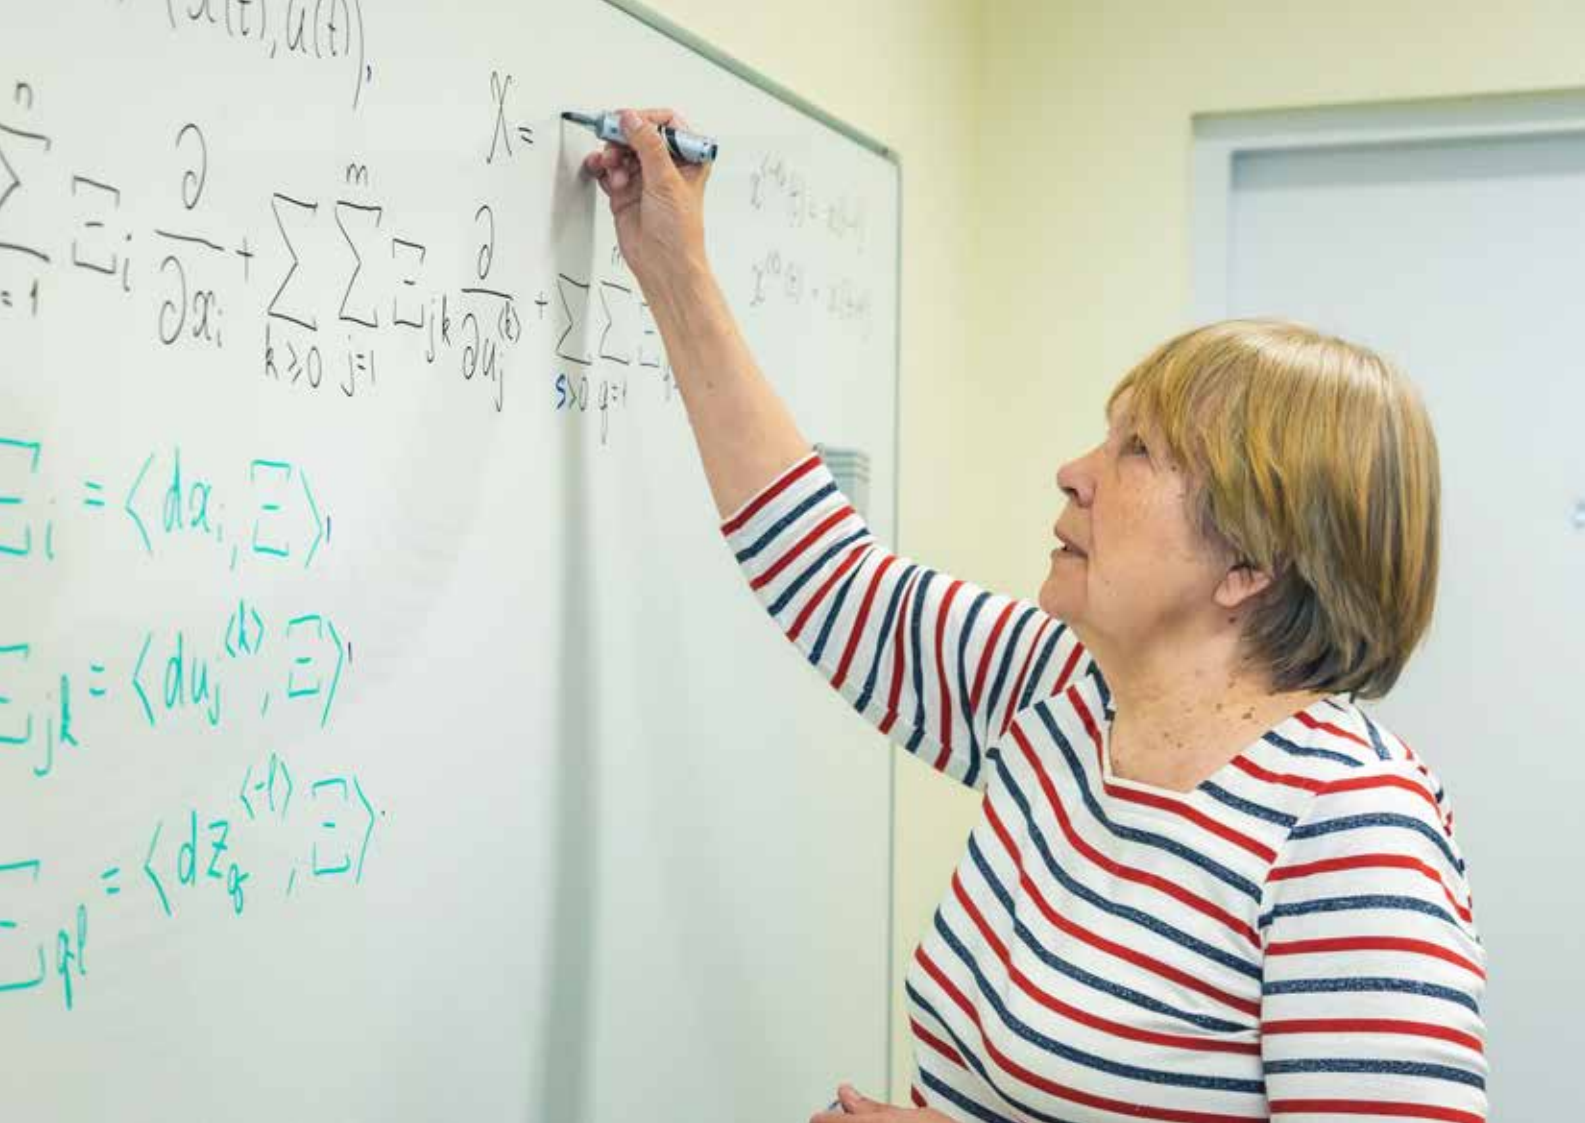 (x(t), u(t)),
X =
∑ⁿ₌₁ Ξᵢ ∂/∂xᵢ + ∑ₖ≥₀ ∑ᵐⱼ₌₁ Ξⱼₖ ∂/∂uⱼ⟨ᵏ⟩ + ∑ s>0 ∑ q=1 Ξ
Ξᵢ = ⟨dxᵢ, Ξ⟩,
Ξⱼₖ = ⟨duⱼ⟨ᵏ⟩, Ξ⟩,
Ξ ql = ⟨dz q⟨-l⟩, Ξ⟩.